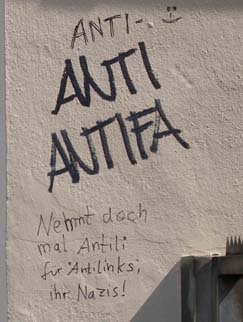 ANTI-
ANTI
ANTIFA
Nehmt doch
mal Antili
für Antilinks,
ihr Nazis!